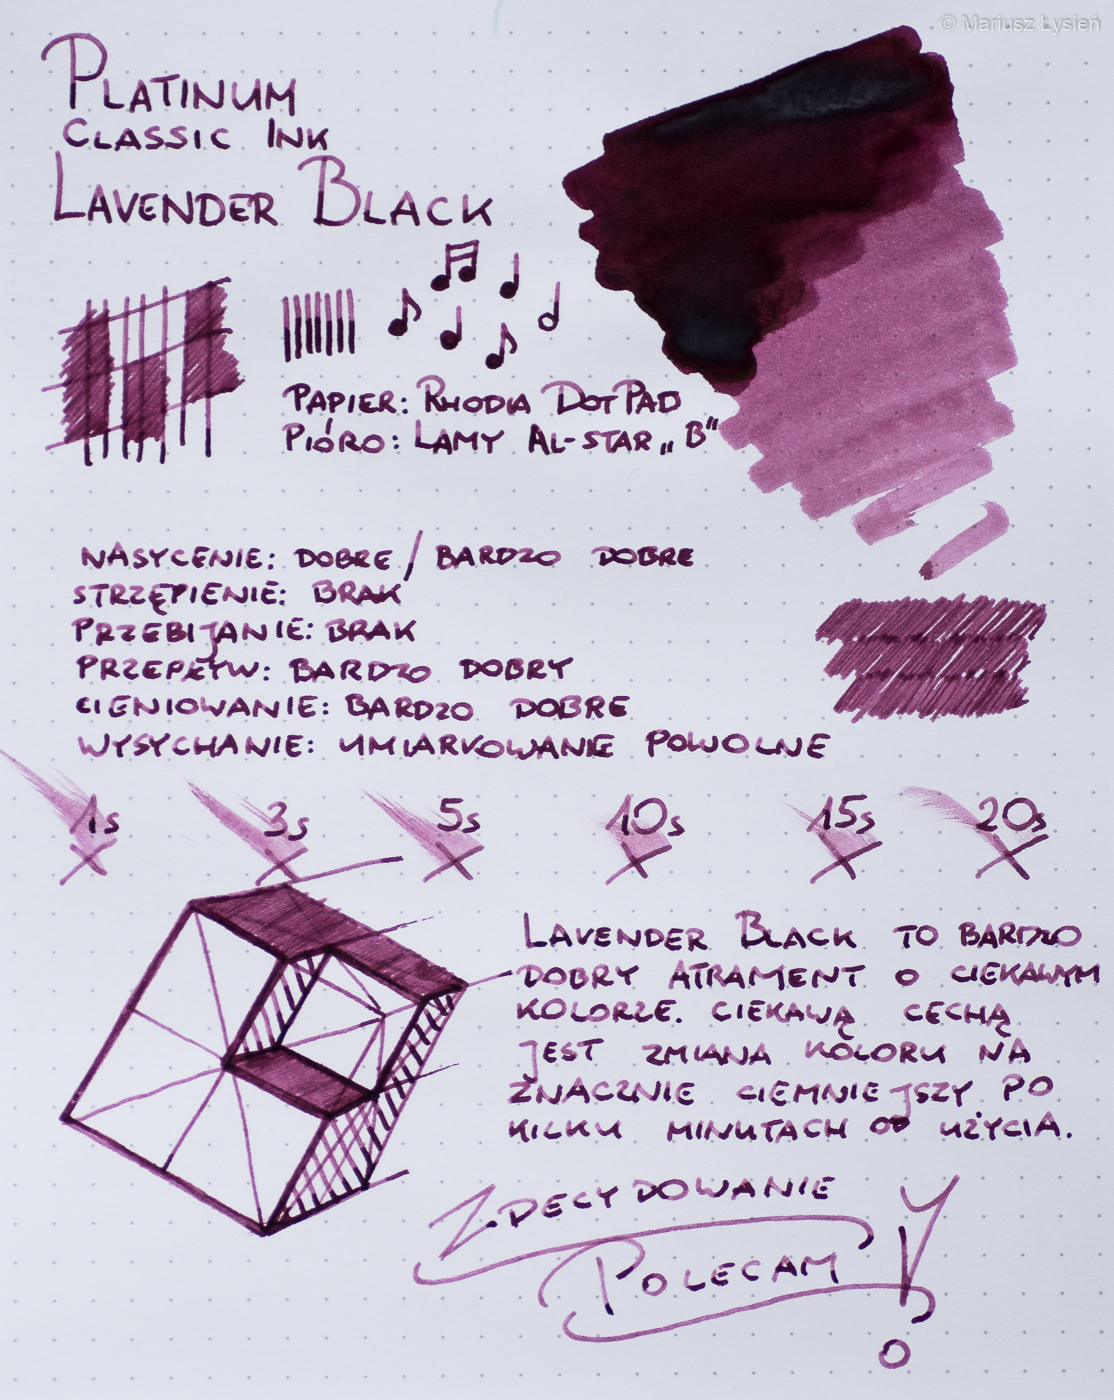 © Mariusz Łysień
PLATINUM
CLASSIC INK
LAVENDER BLACK
PAPIER: RHODIA DOTPAD
PIÓRO: LAMY AL-STAR „B"
NASYCENIE: DOBRE / BARDZO DOBRE
STRZĘPIENIE: BRAK
PRZEBIJANIE: BRAK
PRZEPŁYW: BARDZO DOBRY
CIENIOWANIE: BARDZO DOBRE
WYSYCHANIE: UMIARKOWANIE POWOLNE
1s 3s 5s 10s 15s 20s
LAVENDER BLACK TO BARDZO
DOBRY ATRAMENT O CIEKAWYM
KOLORZE. CIEKAWĄ CECHĄ
JEST ZMIANA KOLORU NA
ZNACZNIE CIEMNIEJSZY PO
KILKU MINUTACH OD UŻYCIA.
ZDECYDOWANIE
POLECAM!